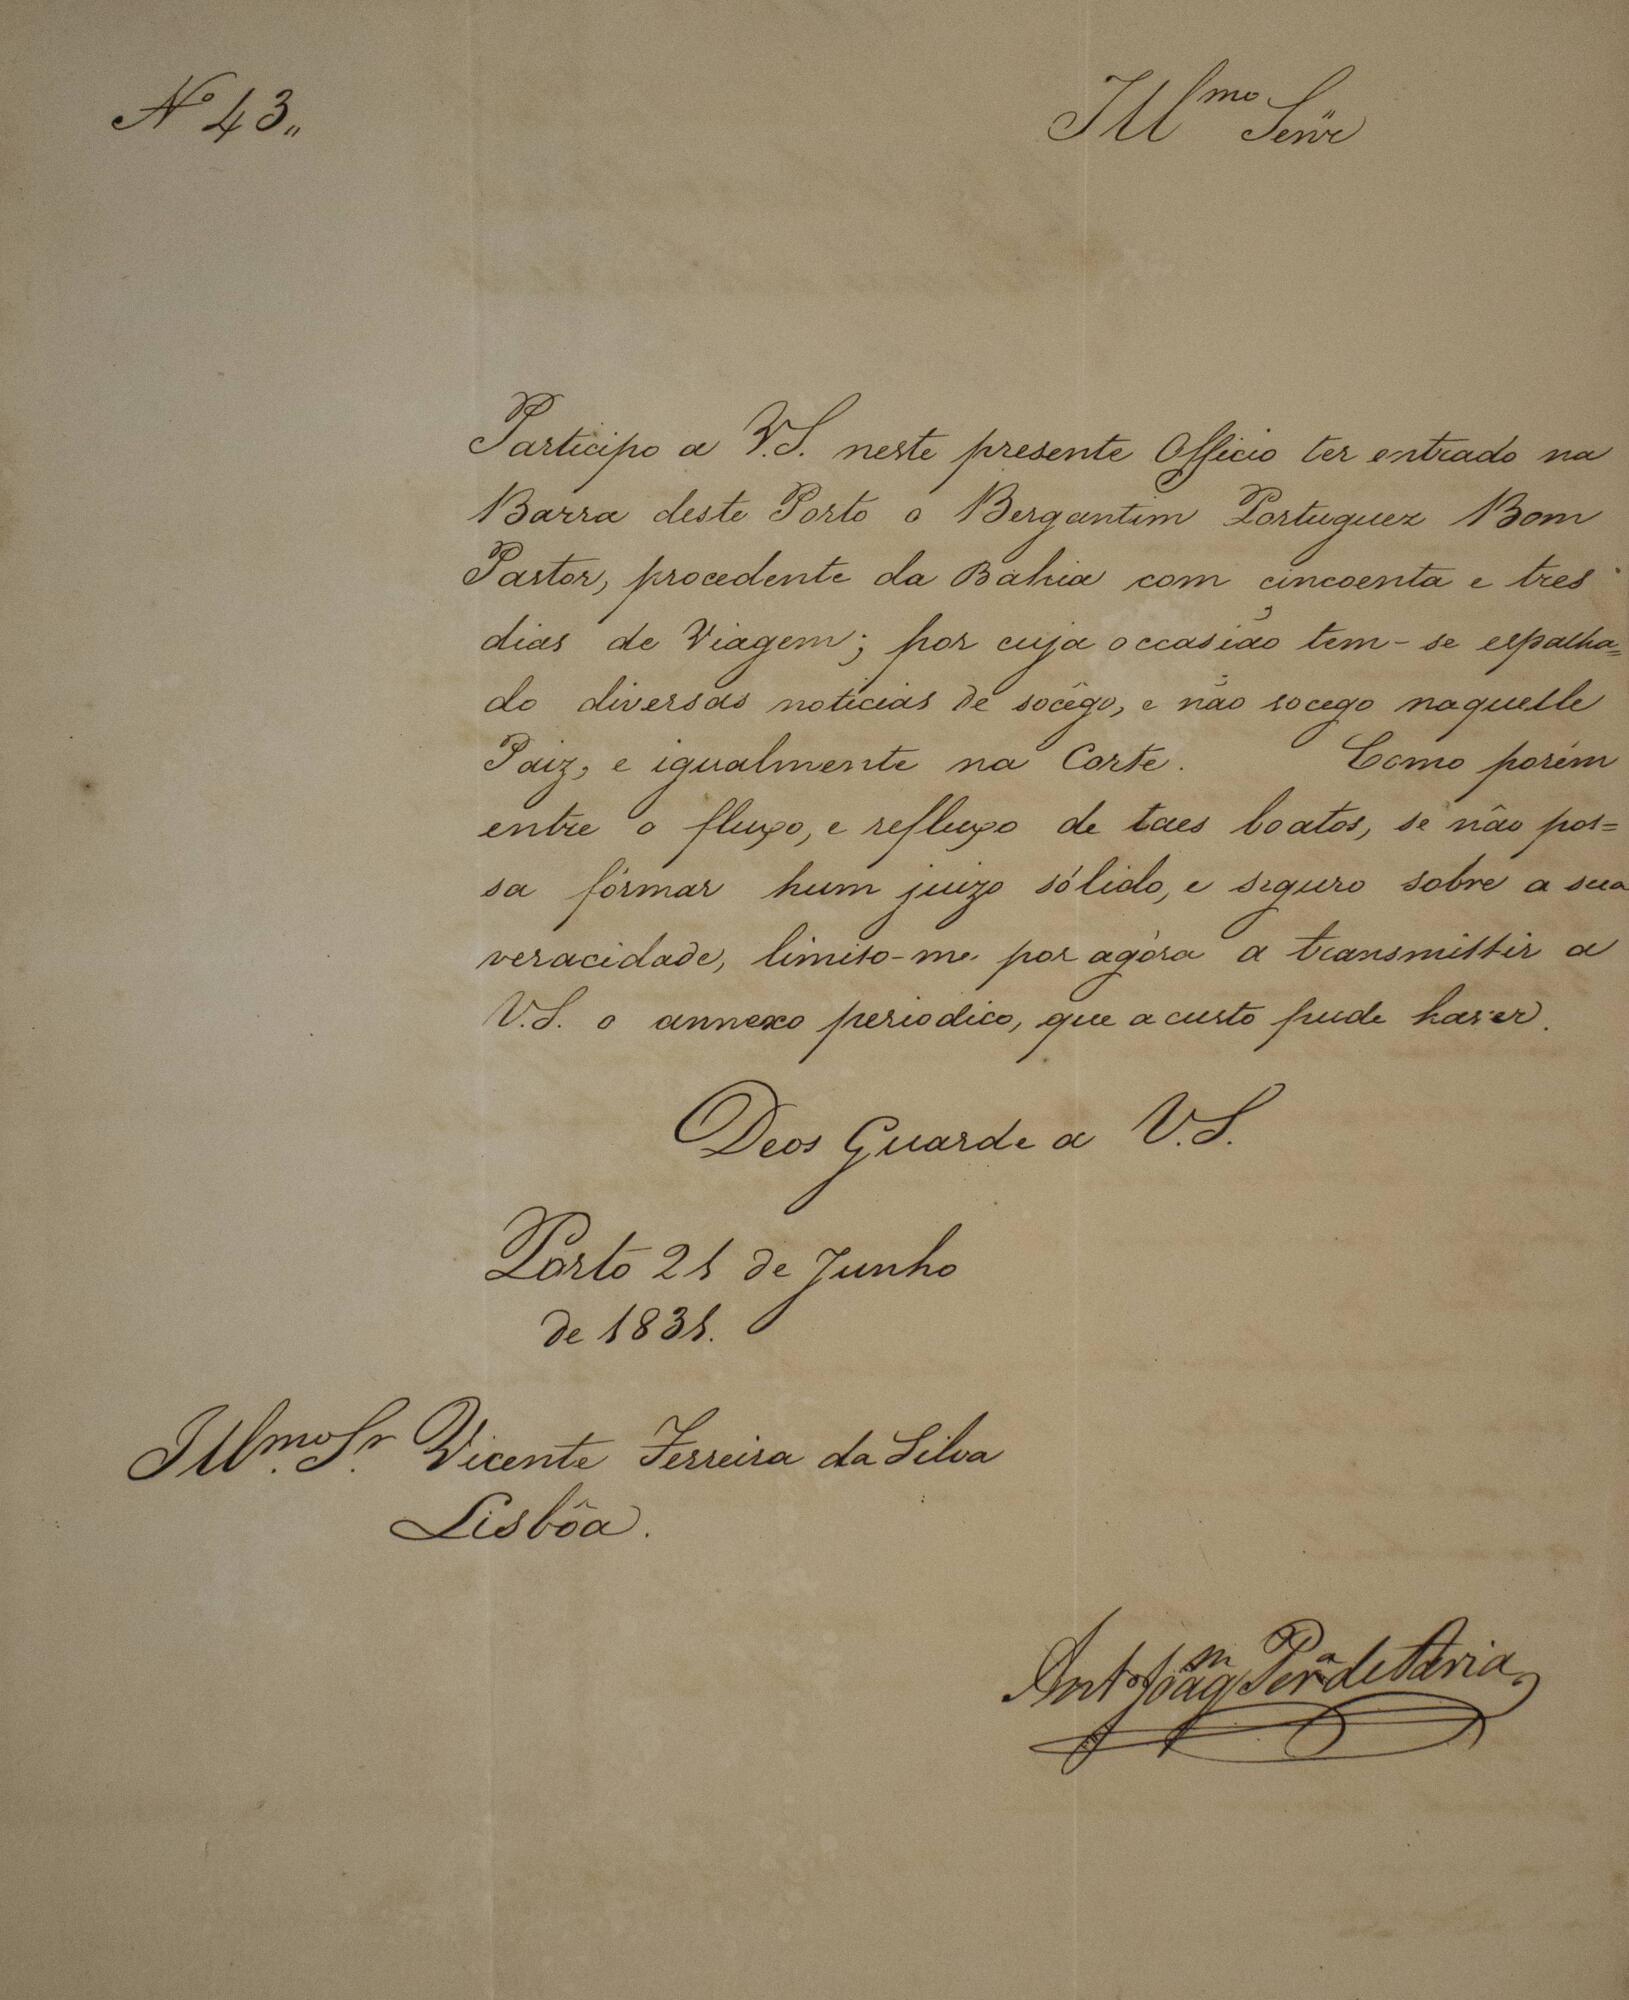 Nº 43,,
Illmo Senr
Participo a V.S. neste presente Officio ter entrado na
Barra deste Porto o Bergantim Portuguez Bom
Pastor, procedente da Bahia com cincoenta e tres
dias de Viagem; por cuja occasião tem-se espalha=
do diversas noticias de socêgo, e não socego naquelle
Paiz, e igualmente na Corte. Como porém
entre o fluxo, e refluxo de taes boatos, se não pos=
sa fórmar hum juizo sólido, e seguro sobre a sua
veracidade, limito-me por agóra a transmittir a
V.S. o annexo periodico, que a custo pude haver.
Deos Guarde a V.S.
Porto 21 de Junho
de 1831.
Illmo. Sr. Vicente Ferreira da Silva
Lisbôa.
Anto Joaqm Pera de